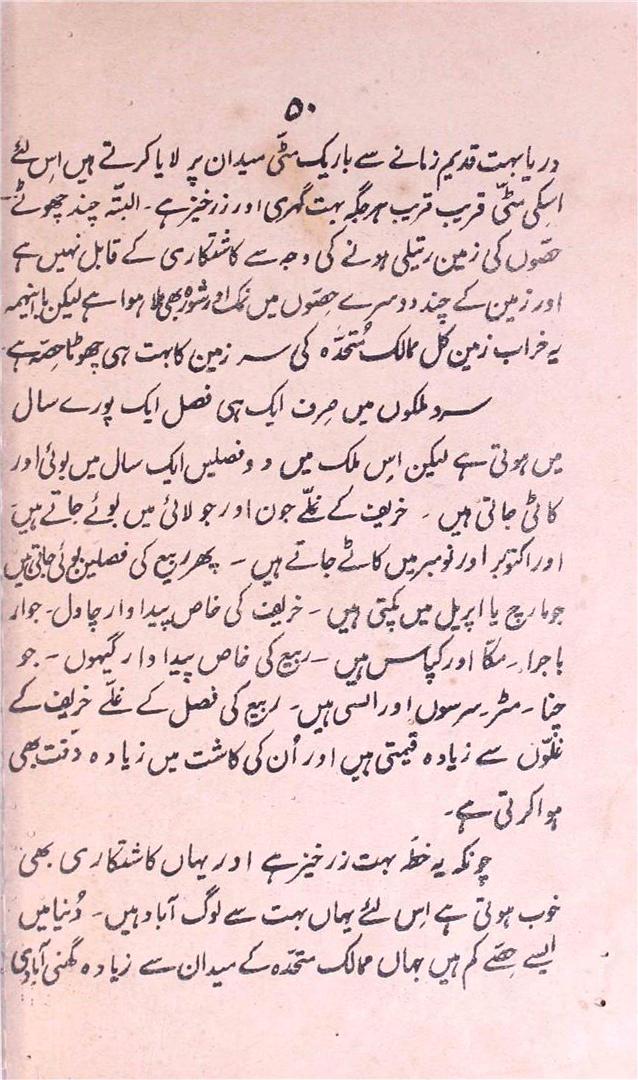 ۵۰
دریا بہت قدیم زمانے سے باریک مٹّی میدان پر لایا کرتے ہیں اِس لئے
اسکی مٹّی قریب قریب ہر جگہ بہت گہری اور زرخیز ہے۔ البتّہ چند چھوٹے
حصّوں کی زمین رتیلی ہونے کی وجہ سے کاشتکاری کے قابل نہیں ہے
اور زمین کے چند دوسرے حِصّوں میں نمک اور شورہ بھی ملا ہوا ہے لیکن بااینہمہ
یہ خراب زمین کل ممالک مُتحدّہ کی سر زمین کا بہت ہی چھوٹا حِصّہ ہے
سرد ملکوں میں صِرف ایک ہی فصل ایک پورے سال
میں ہوتی ہے لیکن اِس ملک میں دو فصلیں ایک سال میں بوئی اور
کاٹی جاتی ہیں ۔ خریف کے غلّے جون اور جولائی میں بوئے جاتے ہیں
اور اکتوبر اور نومبر میں کاٹے جاتے ہیں ۔ پھر ربیع کی فصلین بوئی جاتی ہیں
جو مارچ یا اپریل میں پکتی ہیں ۔ خریف کی خاص پیداوار چاول۔ جوار
باجرا۔ مکّا اور کپاس ہیں ۔ ربیع کی خاص پیداوار گیہوں ۔ جو
چنا۔ مٹر۔ سرسوں اور السی ہیں۔ ربیع کی فصل کے غلّے خریف کے
غلّوں سے زیادہ قیمتی ہیں اور اُن کی کاشت میں زیادہ دقّت بھی
ہوا کرتی ہے۔
چونکہ یہ خطّہ بہت زرخیز ہے اور یہاں کاشتکاری بھی
خوب ہوتی ہے اِس لئے یہاں بہت سے لوگ آباد ہیں۔ دُنیا میں
ایسے حصّے کم ہیں جہاں ممالک متحدّہ کے میدان سے زیادہ گھنی آبادی